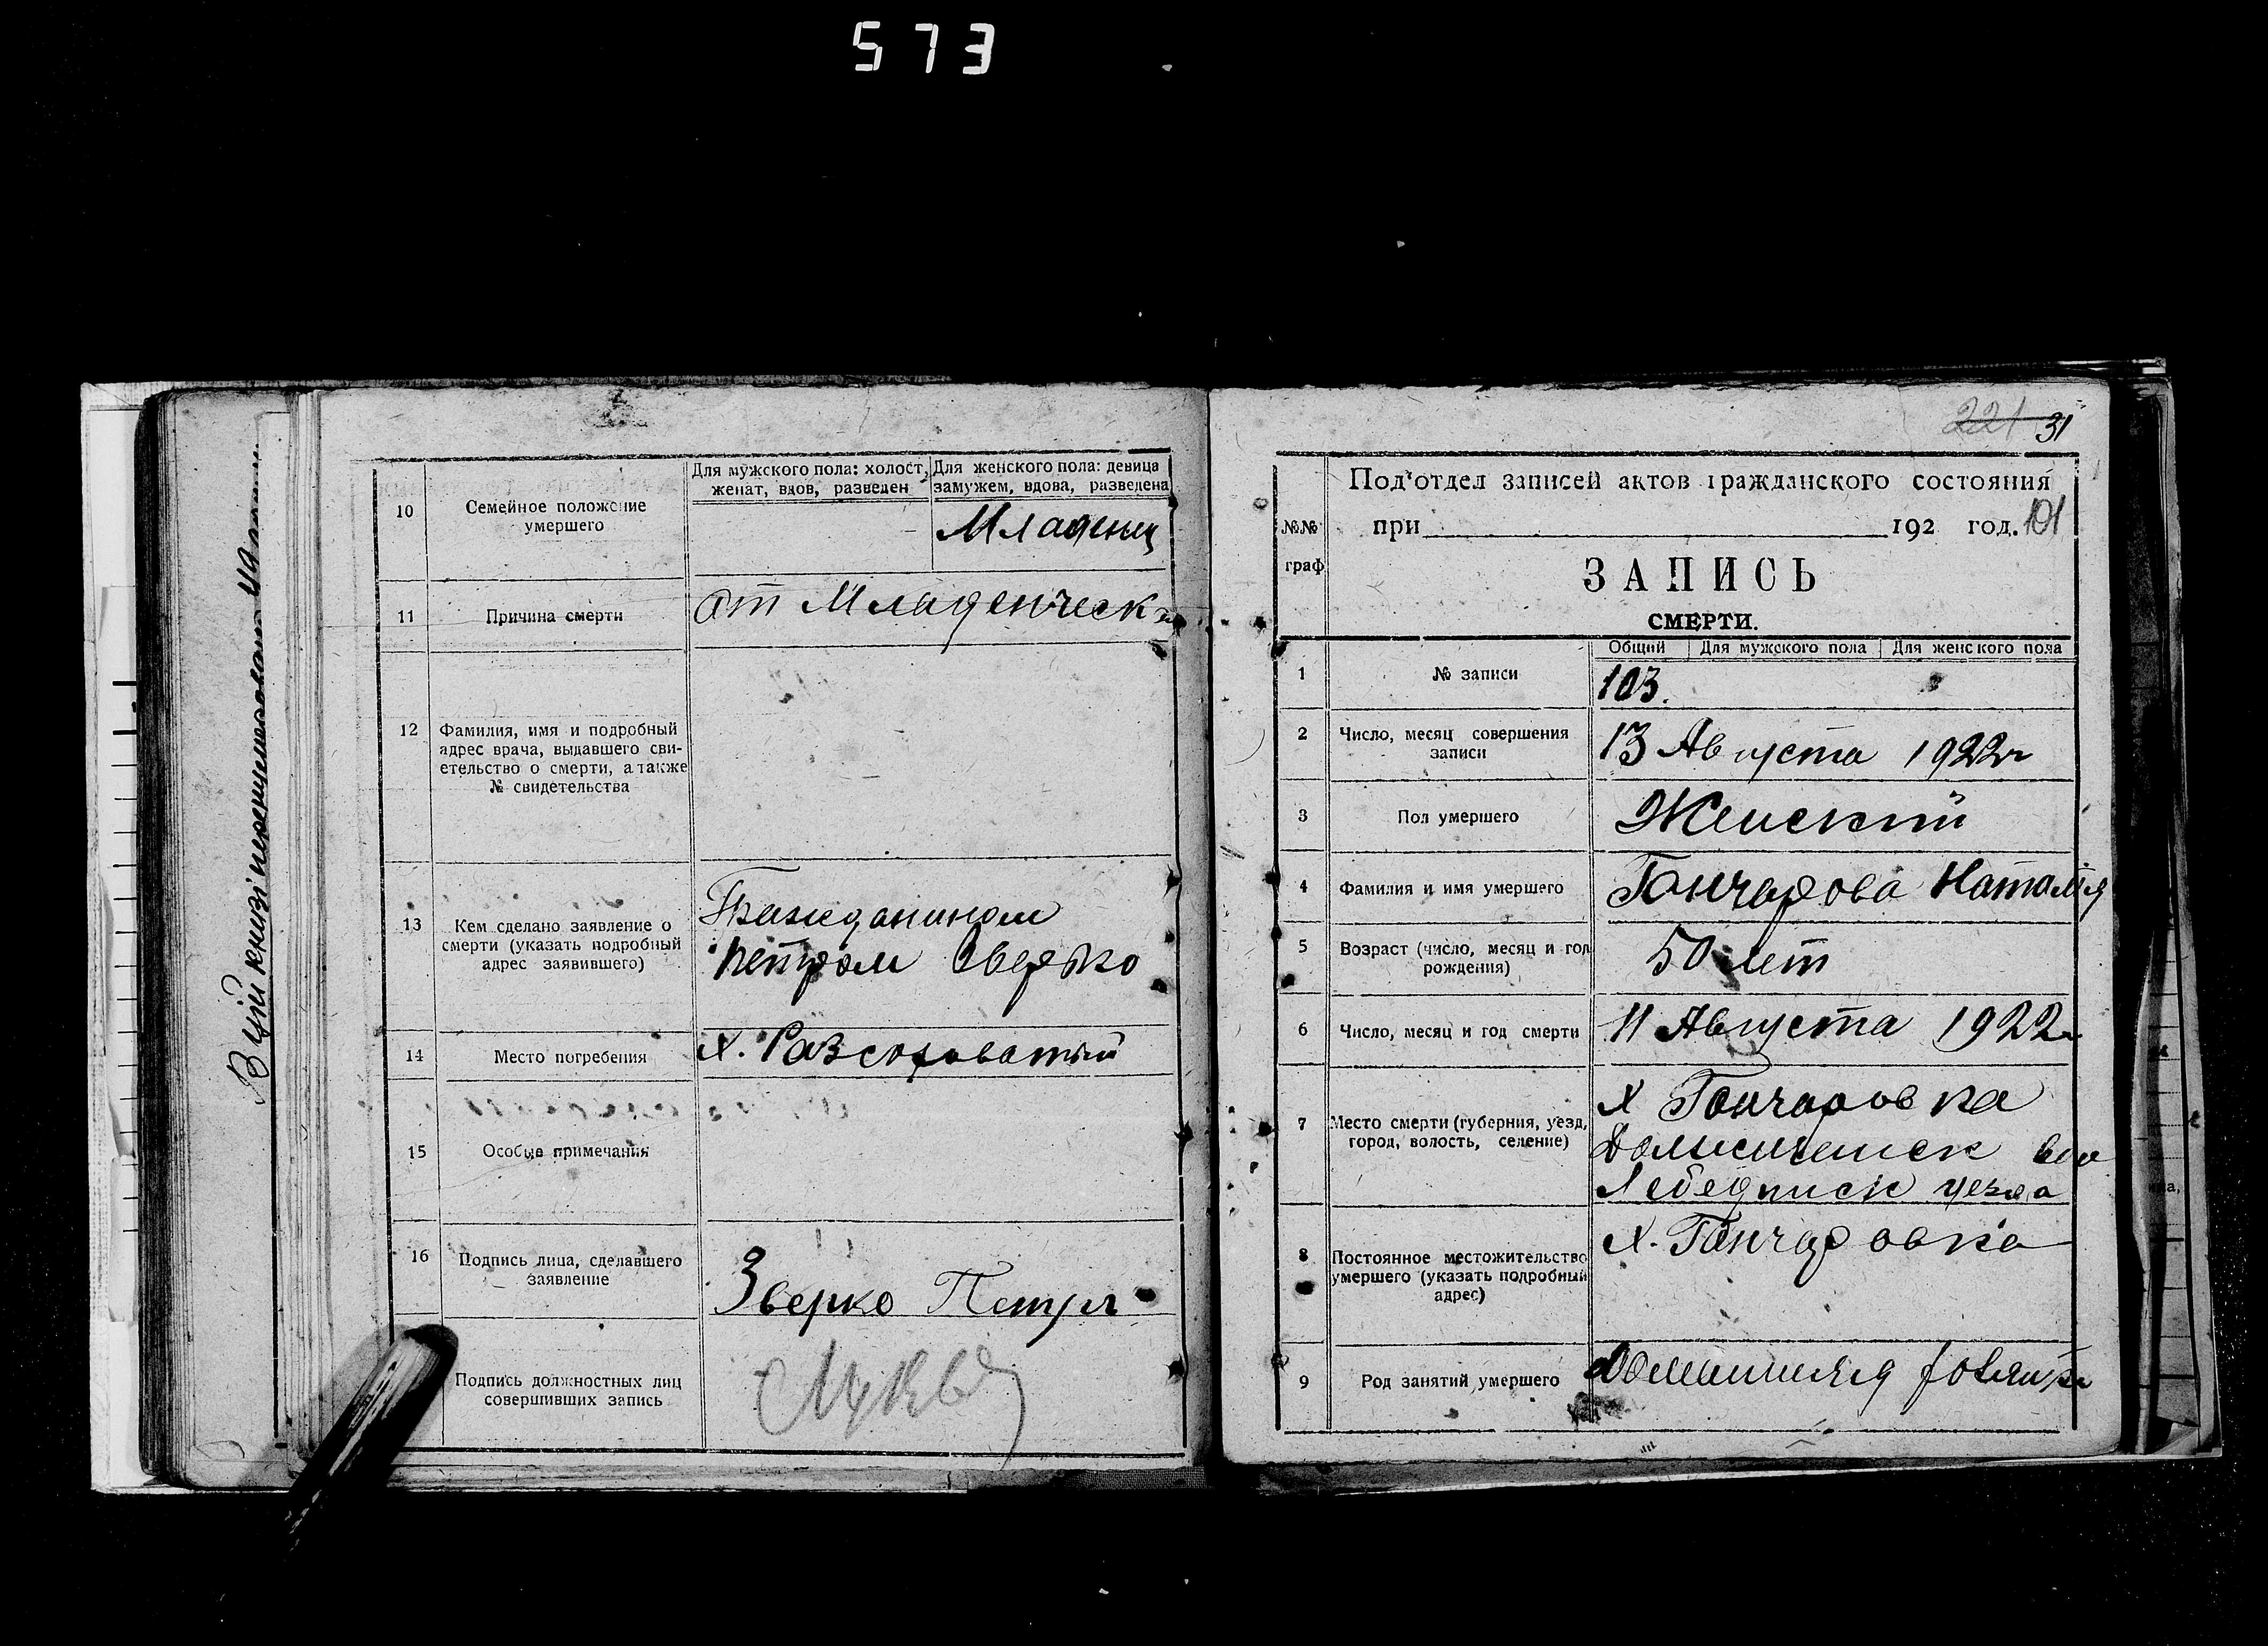 573
В цій книзі перенумеровано
10
Семейное положение
умершего
Для мужского пола: холост,
женат, вдов, разведен
Для женского пола: девица
замужем, вдова, разведена
Младенец
11
Причина смерти
от Младенческ
12
Фамилия, имя и подробный
адрес врача, выдавшего сви-
етельство о смерти, а также
№ свидетельства
13
Кем сделано заявление о
смерти (указать подробный
адрес заявившего)
Гражданином
Петром Зверько
14
Место погребения
х. Разсоховатый
15
Особые примечания
16
Подпись лица, сделавшего
заявление
Зверко Петро
Подпись должностных лиц
совершивших запись
221 31
№№
граф
Под'отдел записей актов гражданского состояния
при 192 год. 101
ЗАПИСЬ
СМЕРТИ.
Общий Для мужского пола Для женского пола
1
№ записи
103.
2
Число, месяц совершения
записи
13 Августа 1922г
3
Пол умершего
Женский
4
Фамилия и имя умершего
Гончарова Наталия
5
Возраст (число, месяц и год
рождения)
50 лет
6
Число, месяц и год смерти
11 Августа 1922г
7
Место смерти (губерния, уезд,
город, волость, селение)
х Гончаровка
вол
Лебединск уезда
8
Постоянное местожительство
умершего (указать подробный
адрес)
х. Гончаровка
9
Род занятий умершего
Домашняя